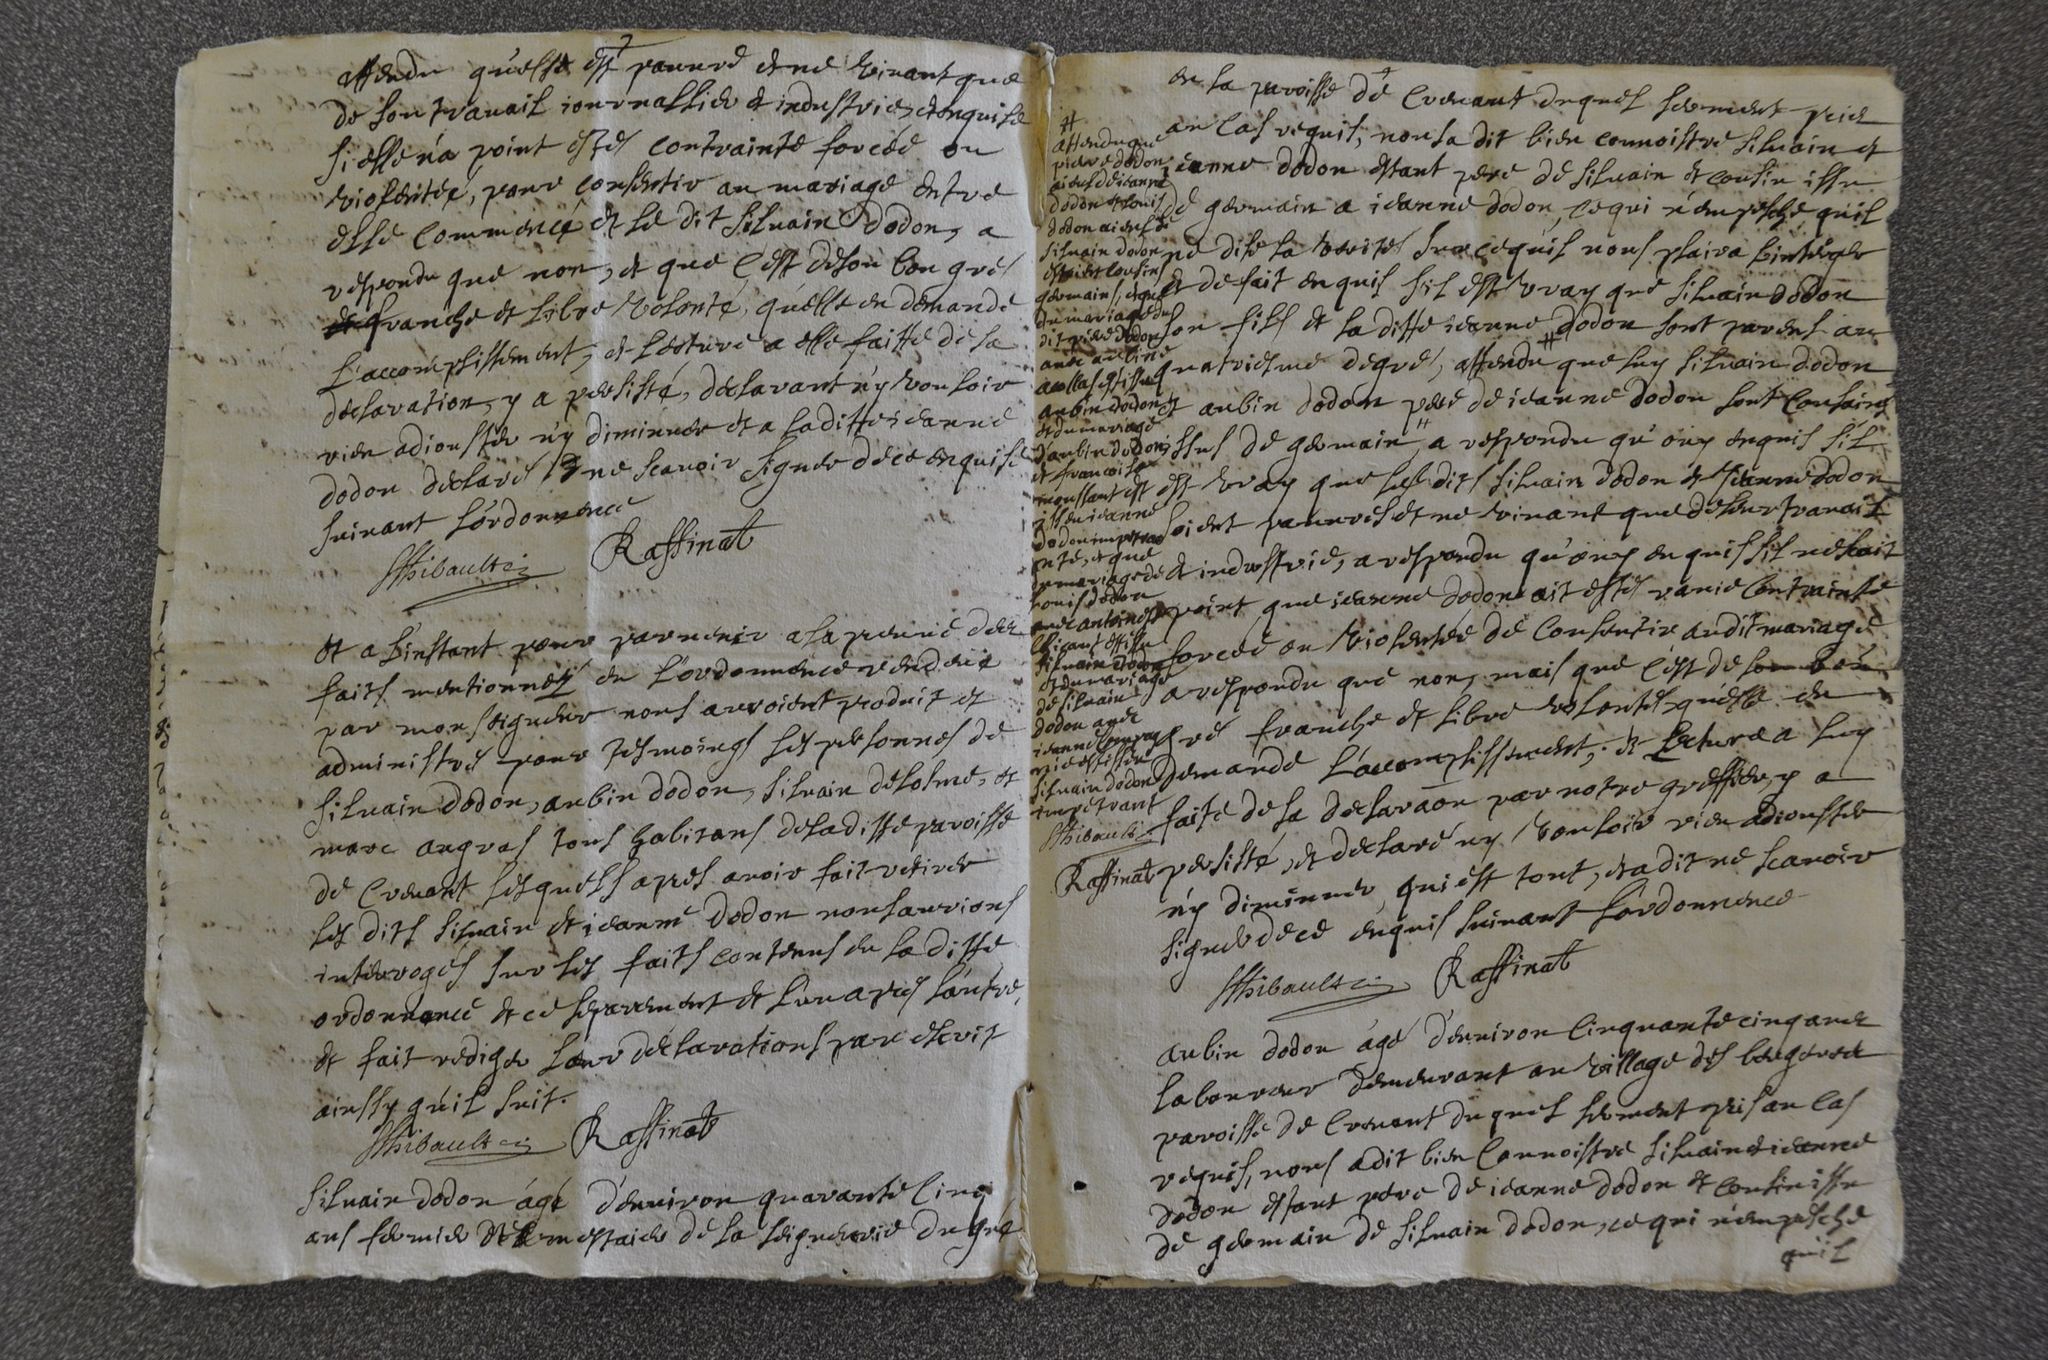 attendu qu'elle est pauvre et ne vivant que
de son travail iournallier et industrie, et enquise
si elle n'a point estés contrainte forcée ou
violentée, pour consentir au mariage entre
elle commencé et le dit silvain Dodon, a
respondu que non, et que c'est deson bon grés
franche et libre volonté, qu'elle en demande
l'accomplissement, et lecture a elle faitte de sa
declaration, y a persisté, declarant n'y vouloir
rien adiouster n'y diminuer et a laditte ieanne
dodon declaré ne scavoir signer dece enquise
suivant l'ordonnence
Thibault
Raffinat
et a l'instant pour parvenir a la preuve des
faits mentionnéz en l'ordonnence rendüe
par monseigneur nous auroient produit et
administré pour tesmoings les personnes de
silvain dodon, aubin dodon, silvain delolme, et
marc angras tous habitans deladitte paroisse
de Crevant lesquels apres avoir fait retirer
les dits silvain et ieanne Dodon nous aurions
interrogés sur les faits contenus en la ditte
ordonnance et ce separement et l'un apres l'autre,
et fait rediger leur declarations par escrit
ainssy qu'il suit.
Thibault
Raffinat
silvain dodon âgé d'environ quarante cinq
ans fermier et mestaier de la seigneurie
en la paroisse dé Crevant duquel serment pris
au cas requis, nous a dit bien connoistre silvain et
ieanne dodon estant pere de silvain et cousin issu
de germain a ieanne dodon, ce qui n'empesche quil
ne dise la verités sur cequ'il nous plaira l'interoger
et de fait enquis s'il est vray que silvain dodon
son fils et la ditte ieanne dodon sont parens au
quatriesme degré, attendu # que luy silvain dodon
et aubin dodon pere de ieanne dodon sont cousins
issus de germain, a respondu qu'ouy enquis s'il
est vray que lesdits silvain dodon et ieanne dodon
soient pauvres et ne vivant que deleur travail
et industrie, a respondu qu'ouy enquis s'il ne scait
point que ieanne dodon ait estés ravie contrainte
forcée ou violentée de consentir audit mariage
a respondu que non, mais que c'est de son bon
gré franche et libre volontés quelle en
demande l'accomplissement, et lecture a luy
faite de sa declaraon par notre greffier, y a
persisté, et declaré n'y vouloir rien adiouster
n'y diminuer, qui est tout, et a dit ne scavoir
signer dece enquis suivant l'ordonnence
Thibault
Raffinat
aubin dodon âgé d'environ cinquante cinq ans
laboureur demeurant au village des bergeres
paroisse de Crevant duquel serment pris au cas
requis, nous adit bien connoistre silvain et ieanne
dodon estant pere de ieanne dodon et cousin issu
de germain de silvain dodon, ce qui n'empesche
quil
#
attendu que
pierre dodon
aieul de ieanne
dodon et louis
dodon aieul de
silvain dodon
estoient cousins
germains, et que
du mariage du
dit pierre dodon
avec
est issu
aubin dodon
et du mariage
d'aubin dodon
et francoise
est
issu ieanne
dodon
et que
du mariage de
louis dodon
avec
est issu
silvain dodon
et du mariage
de silvain
dodon avec
ieanne
est issu
silvain dodon
impetrant
Thibault
Raffinat